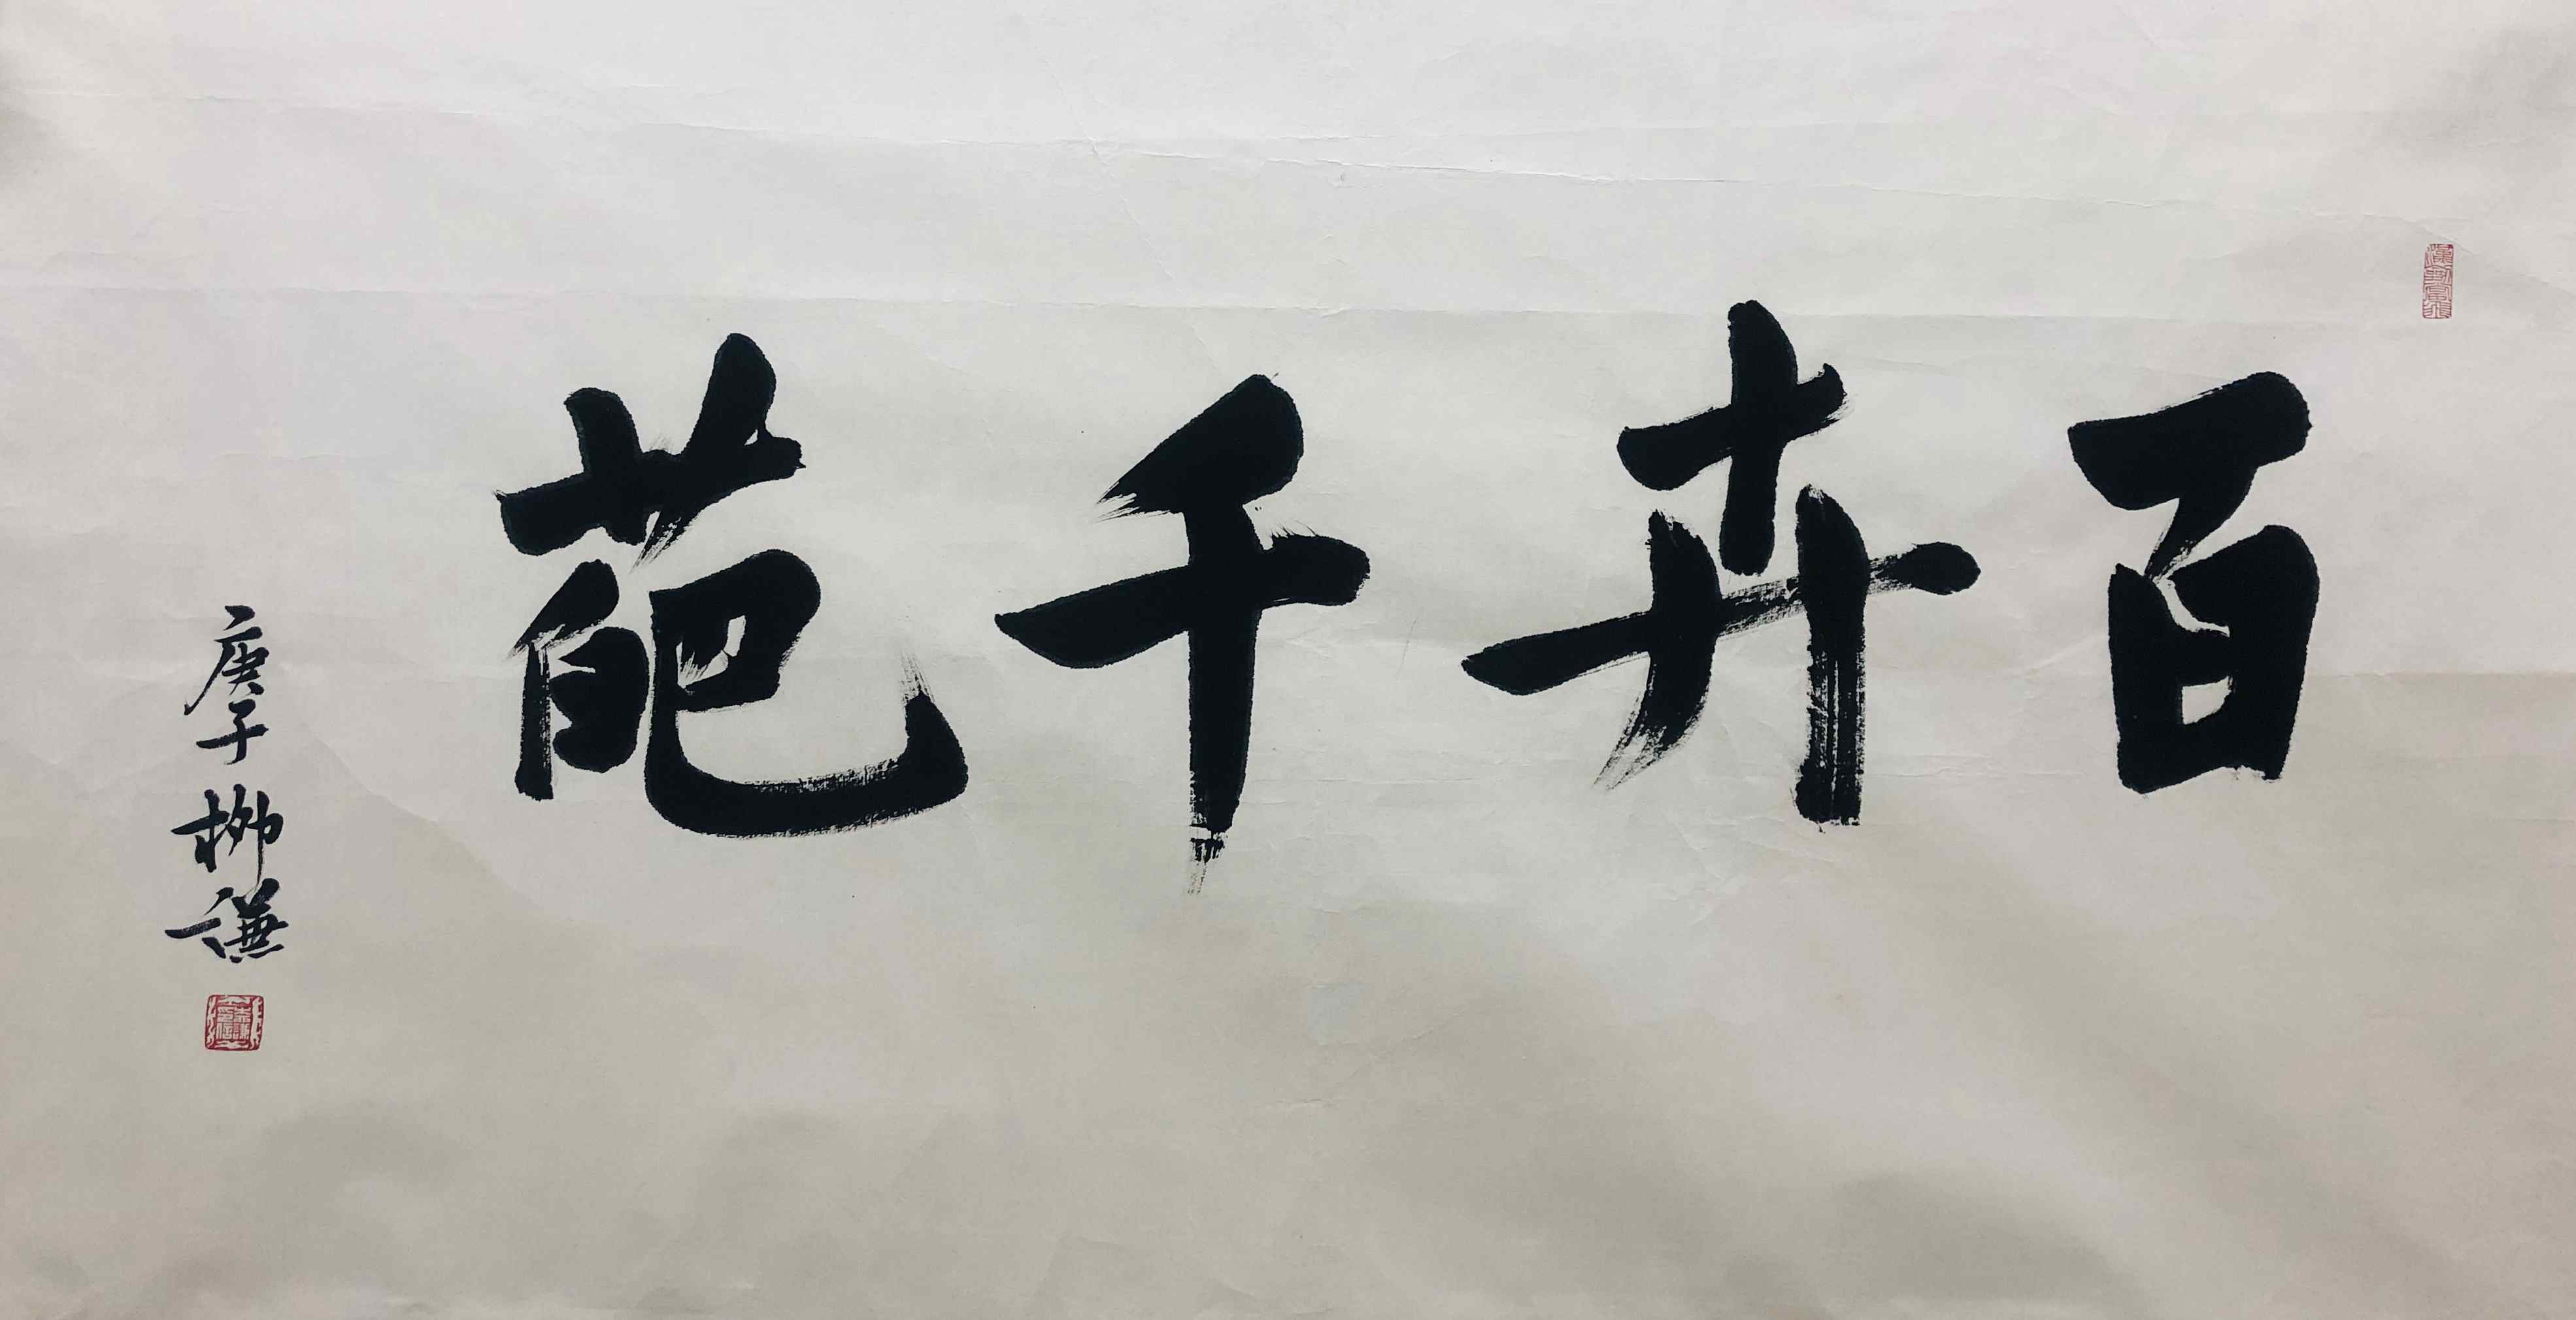 百卉千葩
庚子柳谦